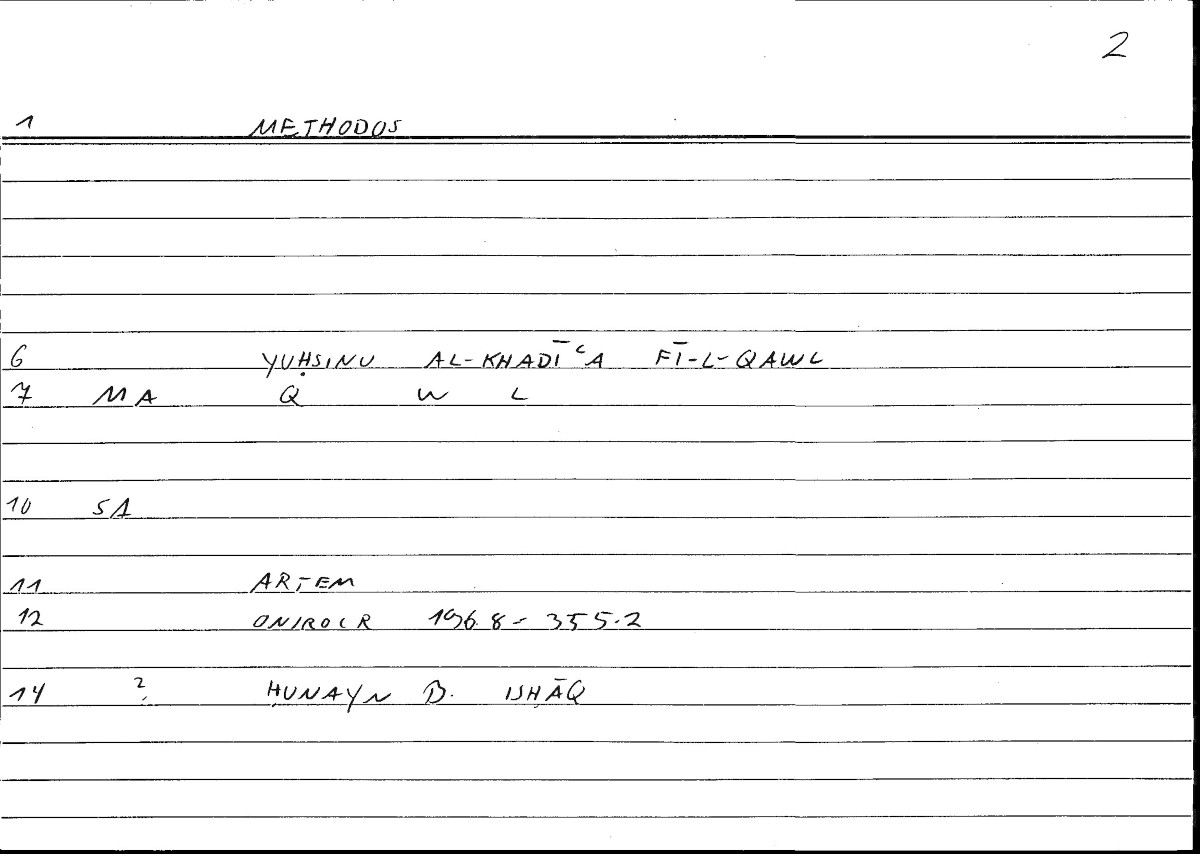 2
1 METHODOS
6 YUḤSINU AL-KHADĪʿA FĪ-L-QAWL
7 MA Q W L
10 SA
11 ARTEM
12 ONIROCR 196.8 - 355.2
14 ? ḤUNAYN B. ISḤĀQ